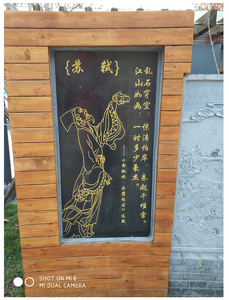 {苏轼}
乱石穿空，惊涛拍岸，卷起千堆雪。
江山如画，一时多少豪杰。
——《念奴娇·赤壁怀古》
SHOT ON MI 6
MI DUAL CAMERA